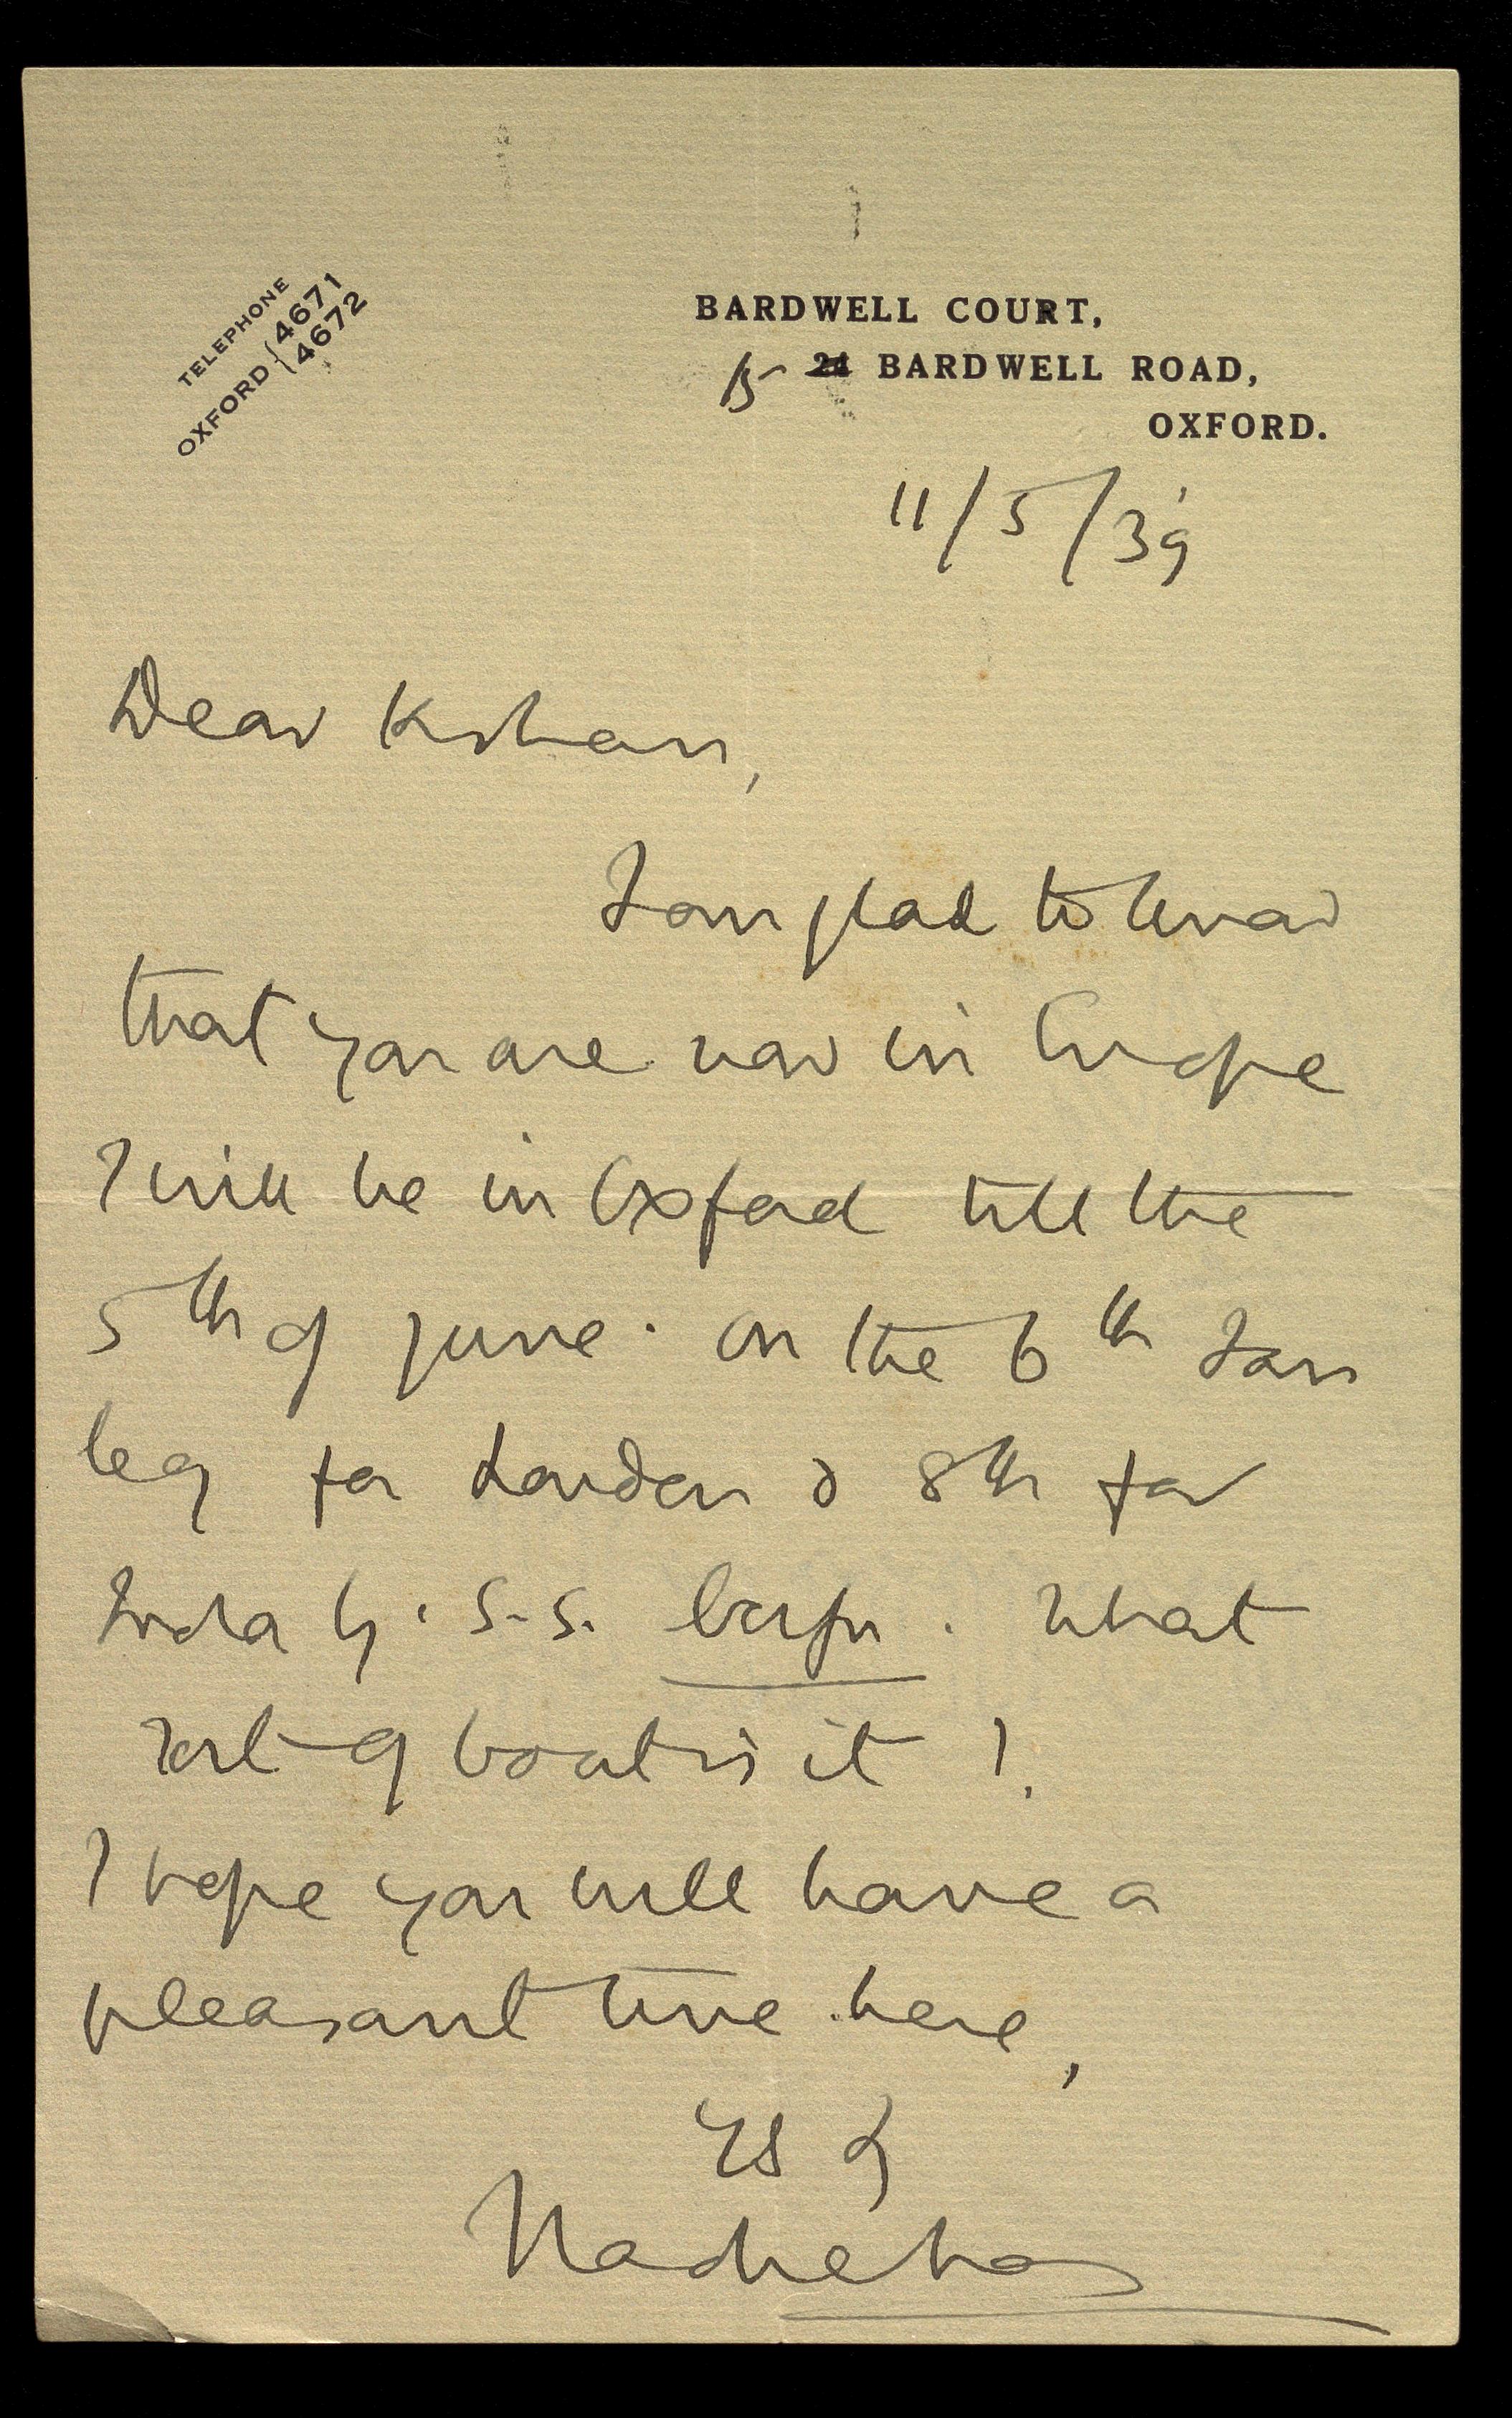 TELEPHONE
OXFORD { 4671
4672
BARDWELL COURT,
15 24 BARDWELL ROAD,
OXFORD.
11/5/39
Dear
I am glad to know
that you are now in Europe
I will be in Oxford till the
5th of June. On the 6th I am
leg for London & 8th for
India by. S.S. Corfu. What
sort of boat is it?
I hope you will have a
pleasant time here,
Ys